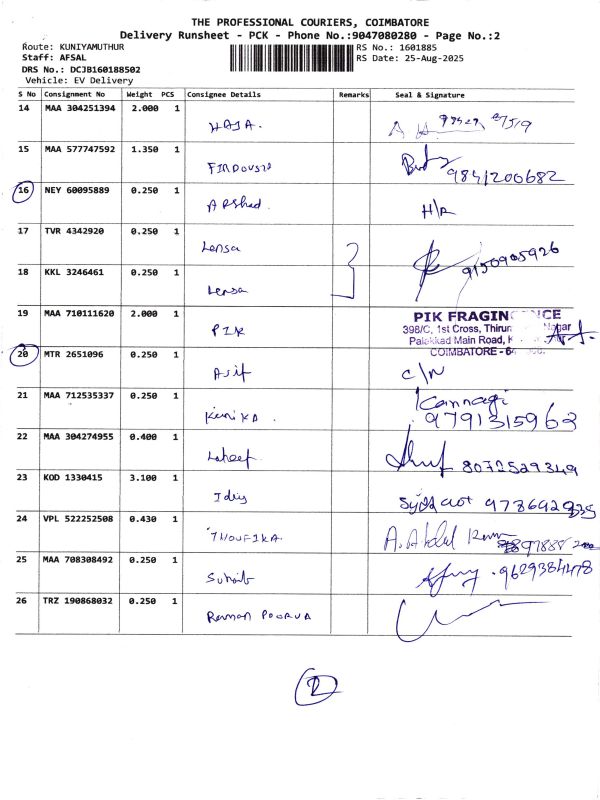 THE PROFESSIONAL COURIERS, COIMBATORE
Delivery Runsheet - PCK - Phone No.:9047080280 - Page No.:2
Route: KUNIYAMUTHUR
RS No.: 1601885
Staff: AFSAL
RS Date: 25-Aug-2025
DRS No.: DCJB160188502
Vehicle: EV Delivery
S No Consignment No Weight PCS Consignee Details Remarks Seal & Signature
14 MAA 304251394 2.000 1
HAJA.
15 MAA 577747592 1.350 1
FIRDOUS
9841200682
16 NEY 60095889 0.250 1
ARshad. H/R
17 TVR 4342920 0.250 1
Lensa
9150905926
18 KKL 3246461 0.250 1
Lensa
19 MAA 710111620 2.000 1
PIK FRAGIN NCE
398/C, 1st Cross, Thiru Nagar
PIK
Palakkad Main Road,
COIMBATORE - 64
20 MTR 2651096 0.250 1
Asif C/N
21 MAA 712535337 0.250 1
Kannagi
Kanika 9791315963
22 MAA 304274955 0.400 1
Latheef 8072529349
23 KOD 1330415 3.100 1
Idris
24 VPL 522252508 0.430 1
THOUFIKA. A. Abdul
25 MAA 708308492 0.250 1
Suhaib 9629384178
26 TRZ 190868032 0.250 1
POORVA
2